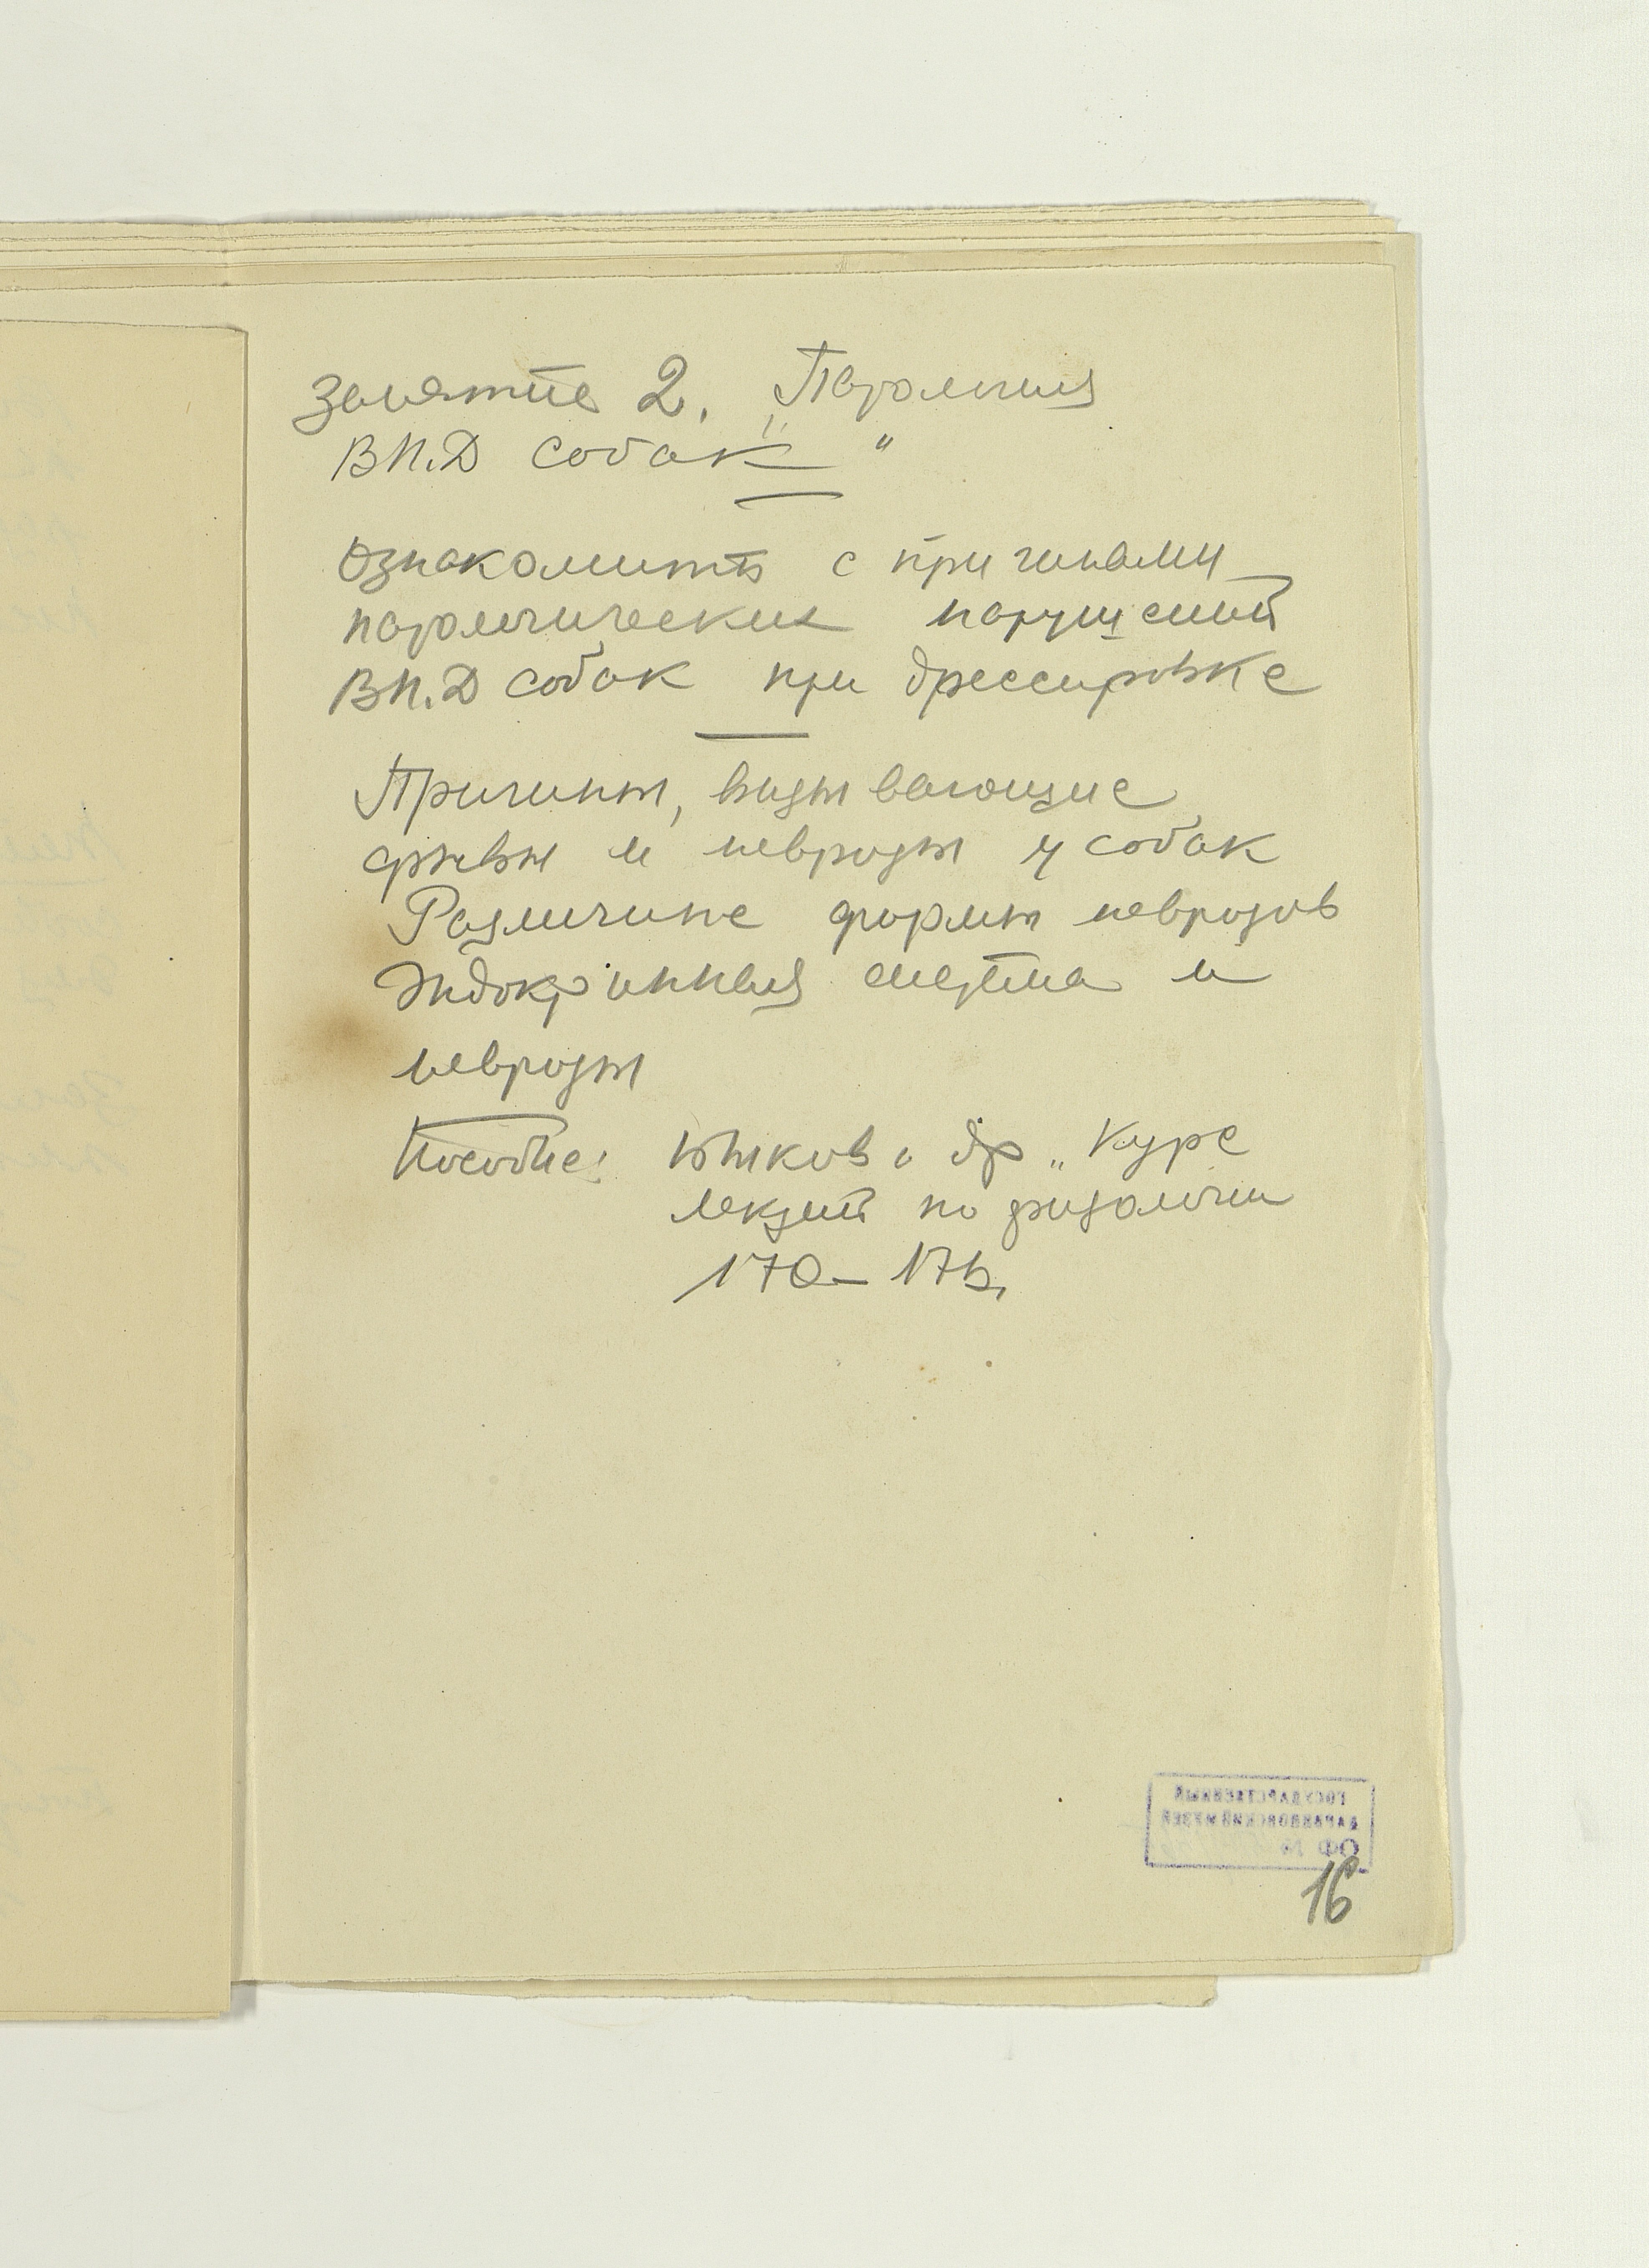 Занятие 2. „Патология
ВН.Д собак"
Ознакомить с причинами
патологических нарушений
ВН.Д собак при дрессировке
Причины, вызывающие
срывы и неврозы у собак
Различные формы неврозов
Эндокринная система и
неврозы
Пособие: Быков и др „Курс
лекций по физиологии
170–176.
ГОСУДАРСТВЕННЫЙ
ДАРВИНОВСКИЙ МУЗЕЙ
ОФ №
16